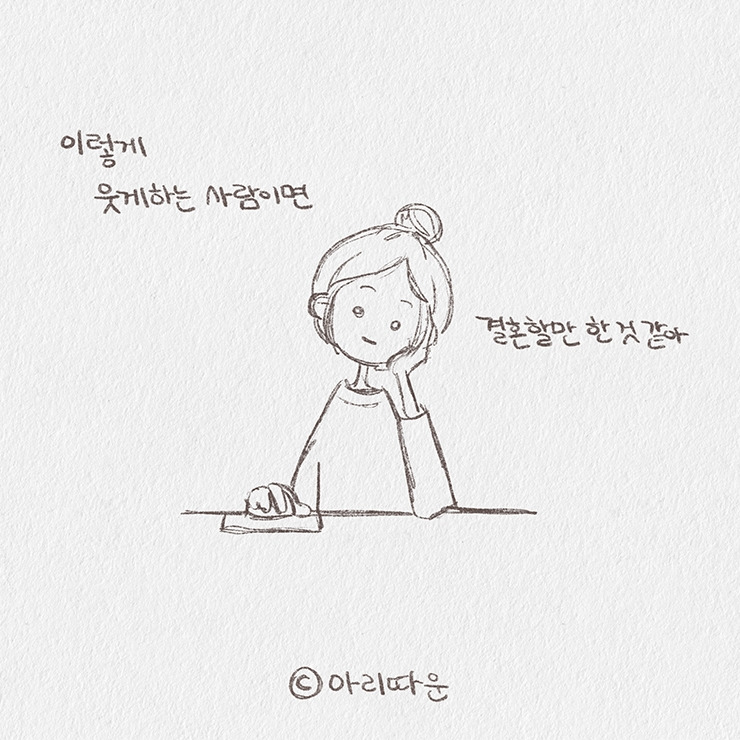 이렇게
웃게하는 사람이면
결혼할만 한 것 같아
©아리따운